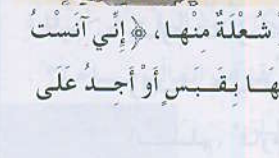 شُعْلَةٌ مِنْهَا، ﴿ إِنِّي آنَسْتُ
هَا بِقَبَسٍ أَوْ أَجِدُ عَلَى